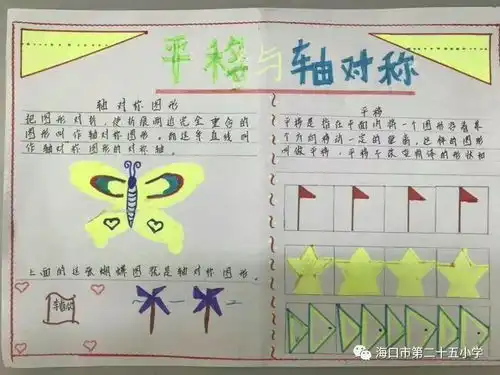 平移与轴对称
轴对称图形
把图形对折，使折痕两边完全重合的
图形叫作轴对称图形。折这条直线叫
作轴对称图形的对称轴。
上面的这张蝴蝶图就是轴对称图形。
平移
平移是指在平面内将一个图形沿着某
个方向移动一定的距离，这样的图形
叫做平移，平移不改变物体的形状和
海口市第二十五小学